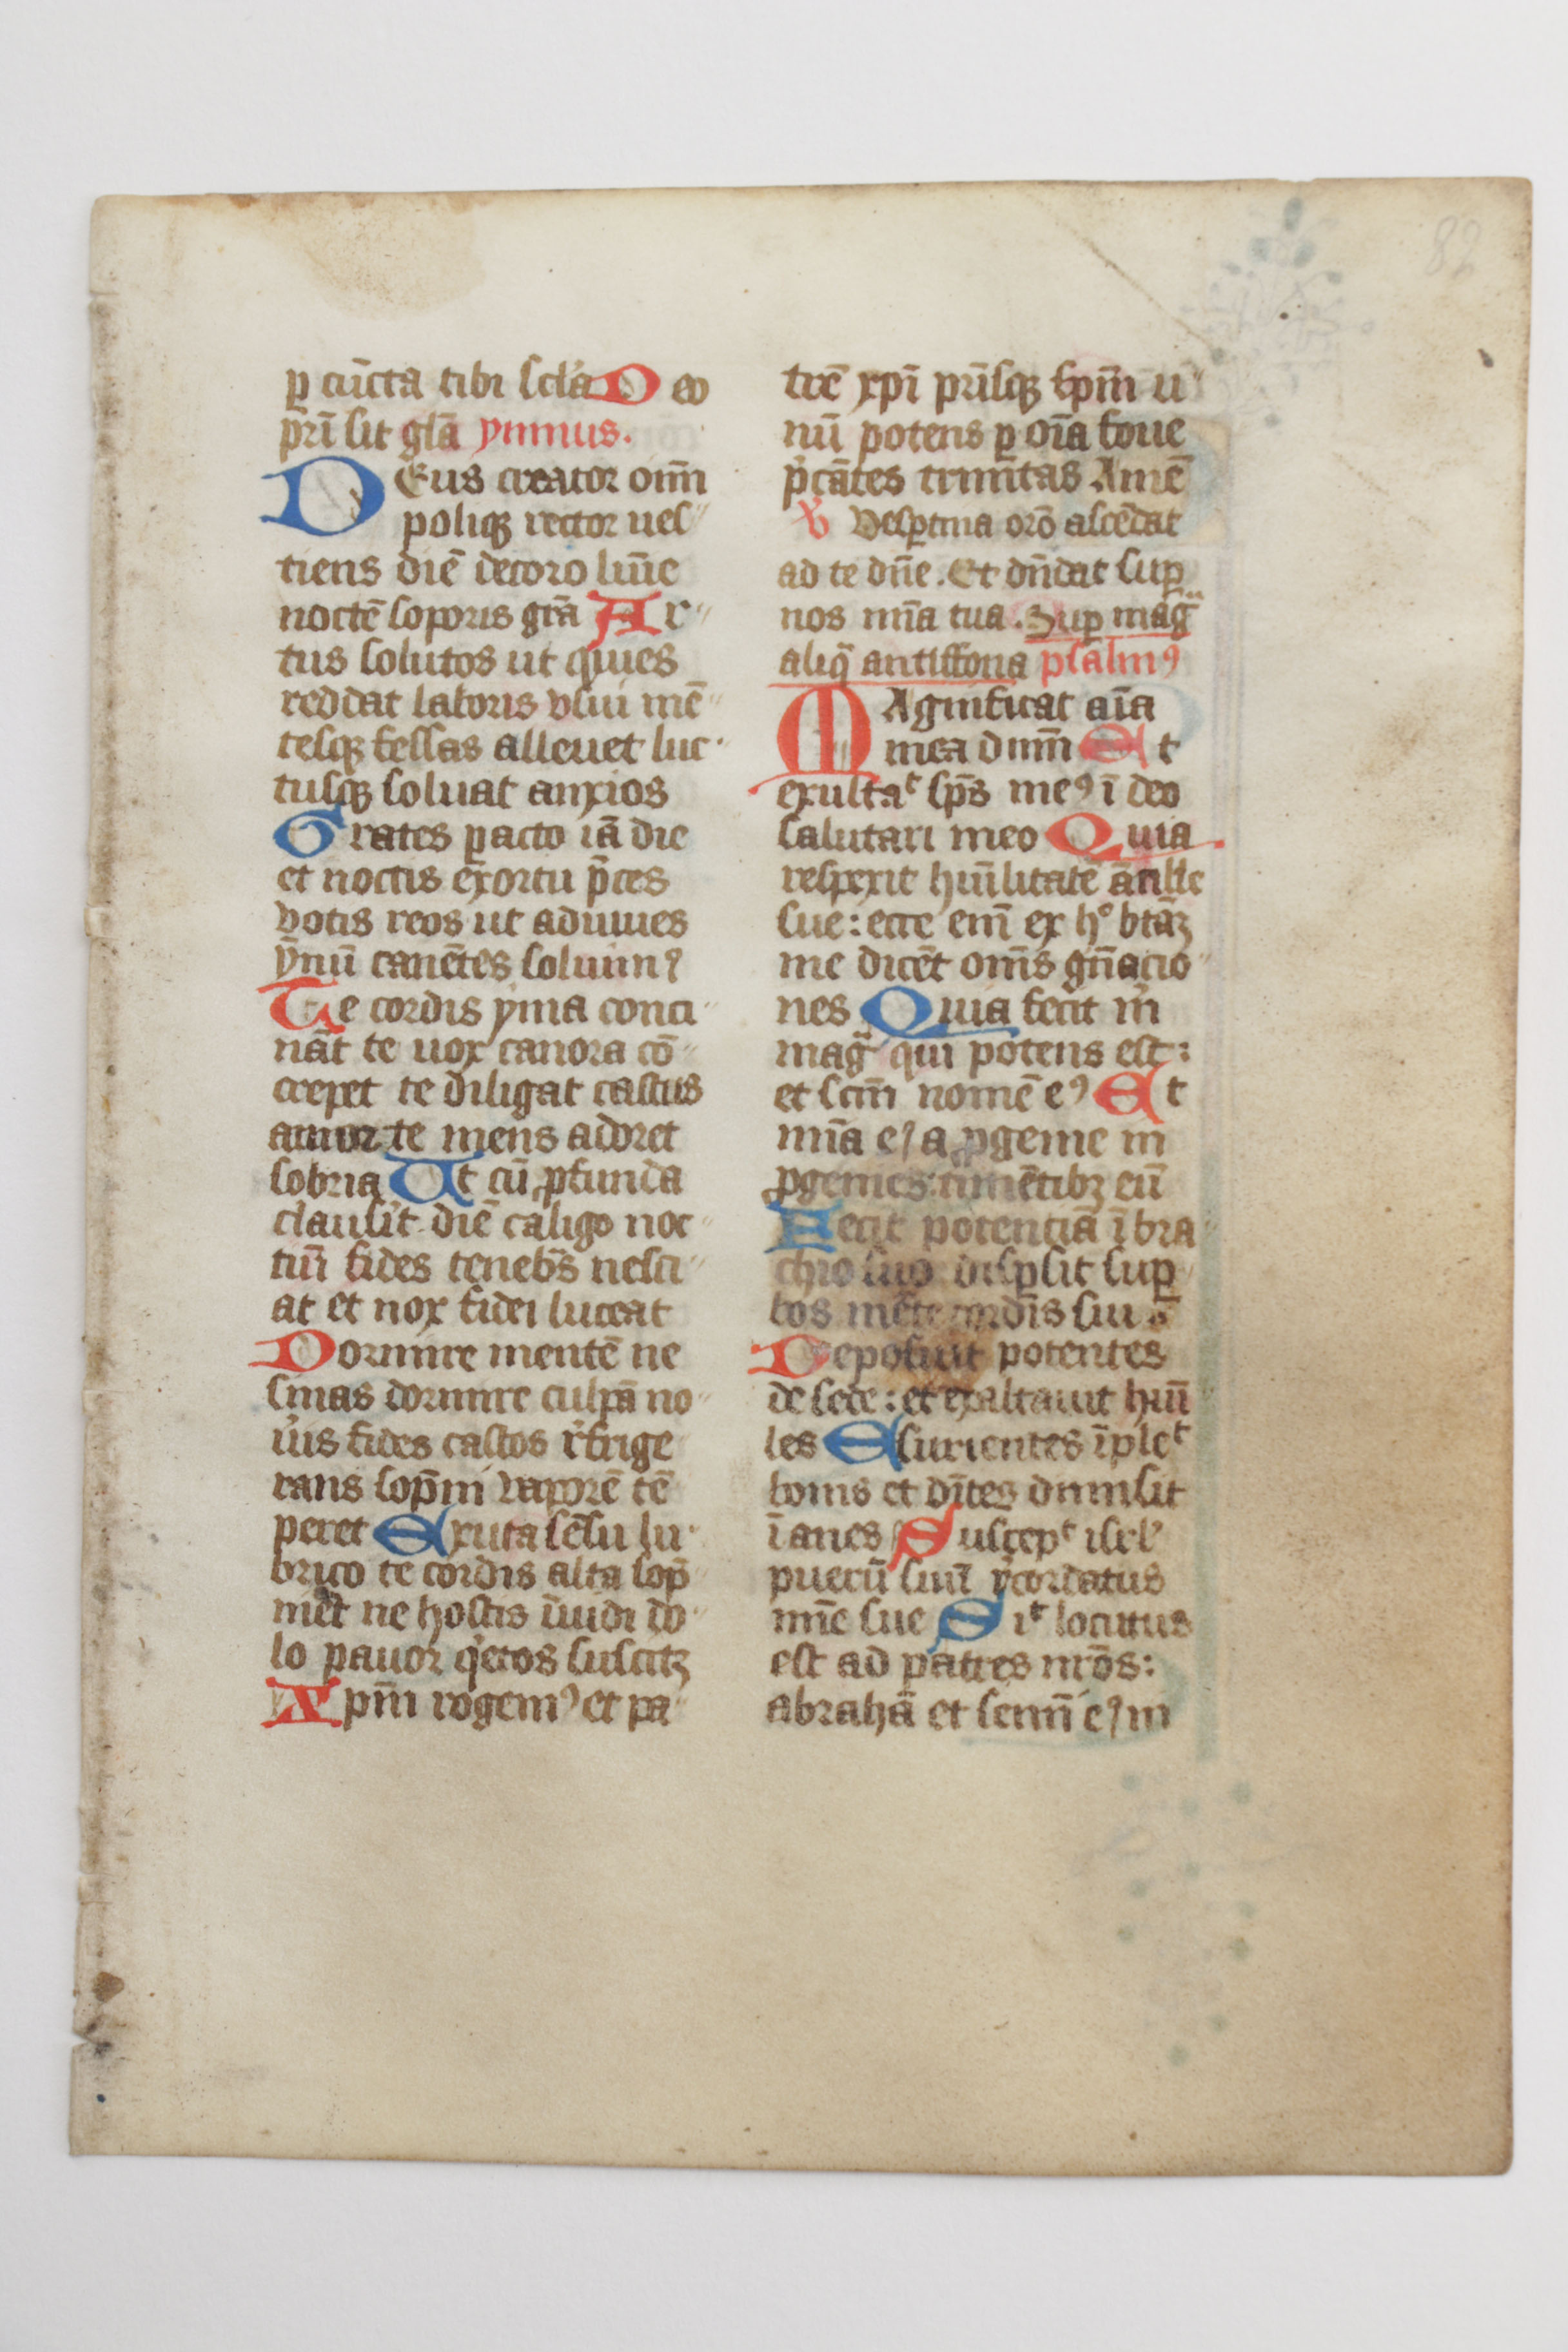 82
p̱ cūcta tibi sc̄l'a Deo
pr̄i sit gl̄a ymnus.
DEus creator om̄i
poliqꝫ rector ues
tiens diē decoro lūīe
noctē soporis gr̄a Ar
tus solutos ut quies
reddat laboris vsui mē
tesqꝫ fessas alleuet luc
tusqꝫ soluat anxios
Grates ꝑacto iā die
et noctis exortu p̄ces
votis reos ut adiuues
ȳnū canētes soluimꝰ
Te cordis yma conci
nāt te uox canora cō
crepet te diligat castus
amor te mens adoret
sobria Ut cū ꝓfunda
clausit diē caligo noc
tiū fides teneb̄s nesci
at et nox fidei luceat
Dormire mentē ne
sinas dormire culpā no
u'is fides castos r'frige
rans sop̄ni vaporē tē
peret Exuta sēsu lu
brico te cordis alta sop̄
nīēt ne hostis īuidi do
lo pauor q'etos suscitꝫ
Xp̄m rogemꝰ et pa
trē xp̄i pr̄isqꝫ sp̄m u
nū potens ꝑ oīa foue
p̄cātes trinītas Amē
V̕ Vesꝑtina orō ascēdat
ad te dn̄e. Et dn̄dat suꝑ
nos mīa tua. Suꝑ mag̃
aliq̃ antiffona psalmꝰ
MAgnificat aīa
mea dnm̄ Et
exultaᵗ sp̄s meꝰ ī deo
salutari meo Quia
respexit hūīlitatē ācille
sue: ecce enī ex hᵒ btāꝫ
me dicēt om̄s gn̄acio
nes Quia fecit m̄
mag̃ qui potens est:
et scm̄ nomē eꝰ Et
mīa eꝰ a ꝓgenie in
ꝓgenies timētibꝫ eū
Fecit potentiā ī bra
chio suo disꝑsit suꝑ
bos mēte cordis sui
Deposuit potentes
de sede: et exaltauit hūī
les Esurientes īpleᵗ
bonis et dīites dimisit
īanes Suscepᵗ isrl'
puerū suū r'cordatus
mīe sue Siᵗ locutus
est ad patres nr̄os:
abrahā et semī eꝰ in